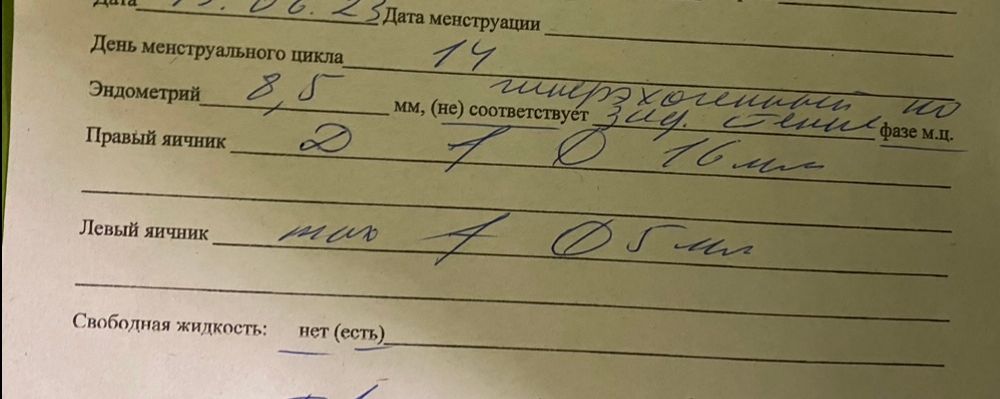 Дата 19.06.23 Дата менструации
День менструального цикла 14
гиперэхогенный по
Эндометрий 8,5 мм, (не) соответствует зад. стенке фазе м.ц.
Правый яичник D f Ø 16 мм
Левый яичник max f Ø 5 мм
Свободная жидкость: нет (есть)